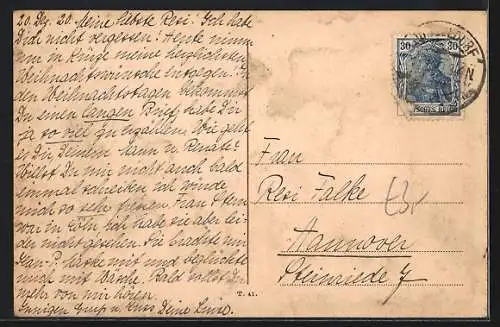 20. Dez. 20. Meine liebste Resi! Ich habe
Dich nicht vergessen! Heute nimm
nur in Kürze meine herzlichsten
Weihnachtswünsche entgegen! In
den Weihnachtstagen bekommst
Du einen langen Brief, habe Dir
ja so viel zu erzählen. Wie geht
es Dir, Deinem Mann u. Renate?
Willst Du mir nicht auch bald
einmal schreiben, ich würde
mich so sehr freuen. Frau
war in Köln, ich habe sie aber lei-
der nicht gesehen. Sie brachte mir
mit und beglückte
mich mit Wäsche. Bald sollst Du
mehr von mir hören.
Innigen Gruß u. Kuss Deine
30 30
Frau
Resi Falke
Hannover
Steinriede 7
T. 41.